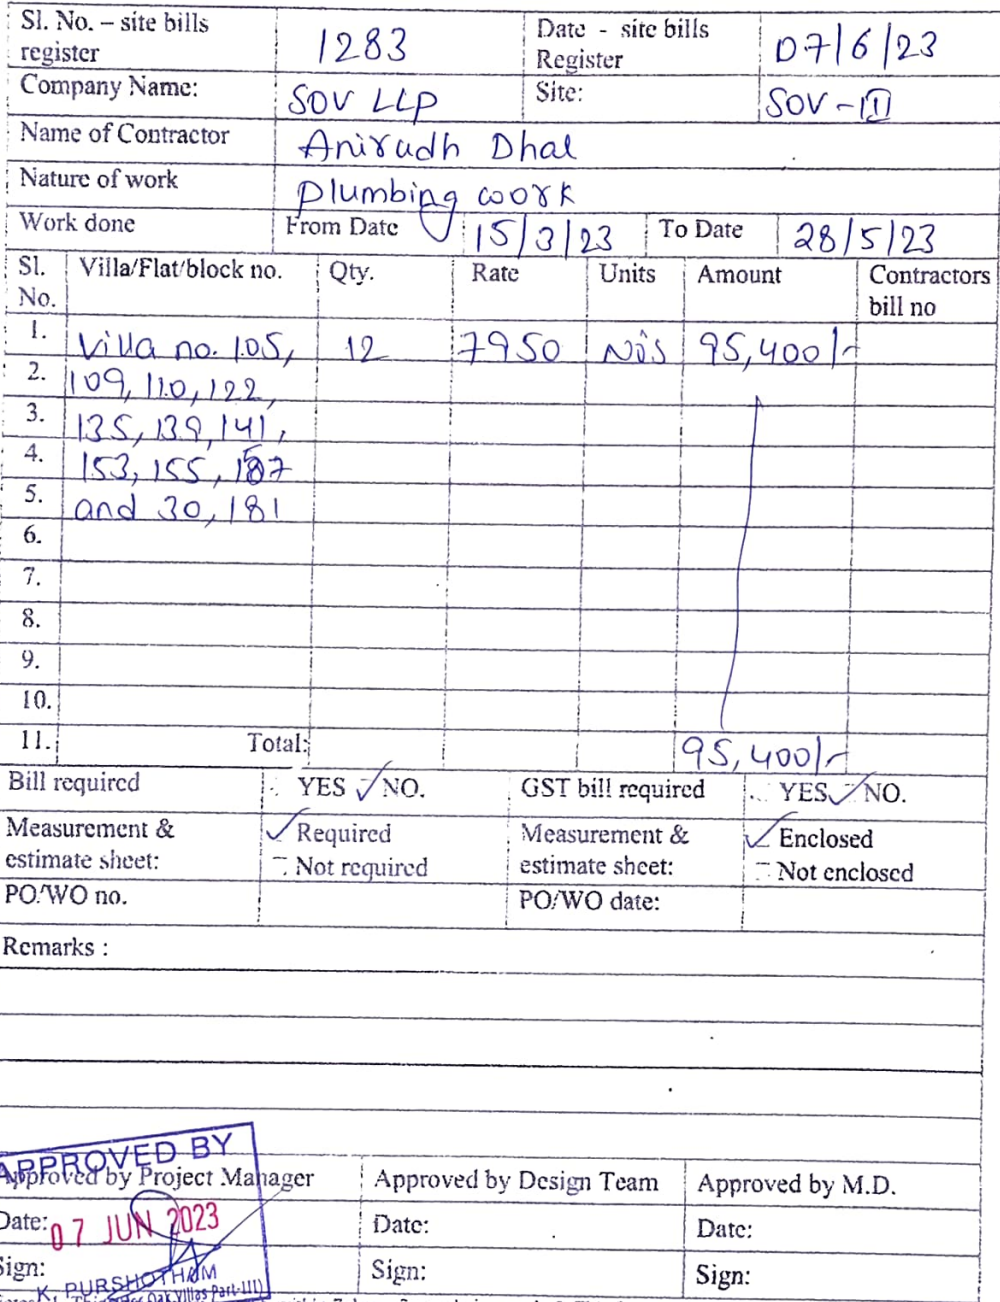 Sl. No. – site bills register 1283 Date - site bills Register 07/6/23
Company Name: SOV LLP Site: SOV-III
Name of Contractor Anirudh Dhal
Nature of work Plumbing work
Work done From Date 15/3/23 To Date 28/5/23
Sl. No. Villa/Flat/block no. Qty. Rate Units Amount Contractors bill no
1. Villa no. 105, 12 7950 No's 95,400/-
2. 109, 110, 122,
3. 135, 139, 141,
4. 153, 155, 187
5. and 30, 181
6.
7.
8.
9.
10.
11. Total: 95,400/-
Bill required YES NO. GST bill required YES NO.
Measurement & estimate sheet: Required Measurement & estimate sheet: Enclosed
Not required Not enclosed
PO/WO no. PO/WO date:
Remarks :
APPROVED BY
Approved by Project Manager Approved by Design Team Approved by M.D.
Date: 07 JUN 2023 Date: Date:
Sign: Sign: Sign:
K. PURSHOTHAM
Oak Villas Part-III)